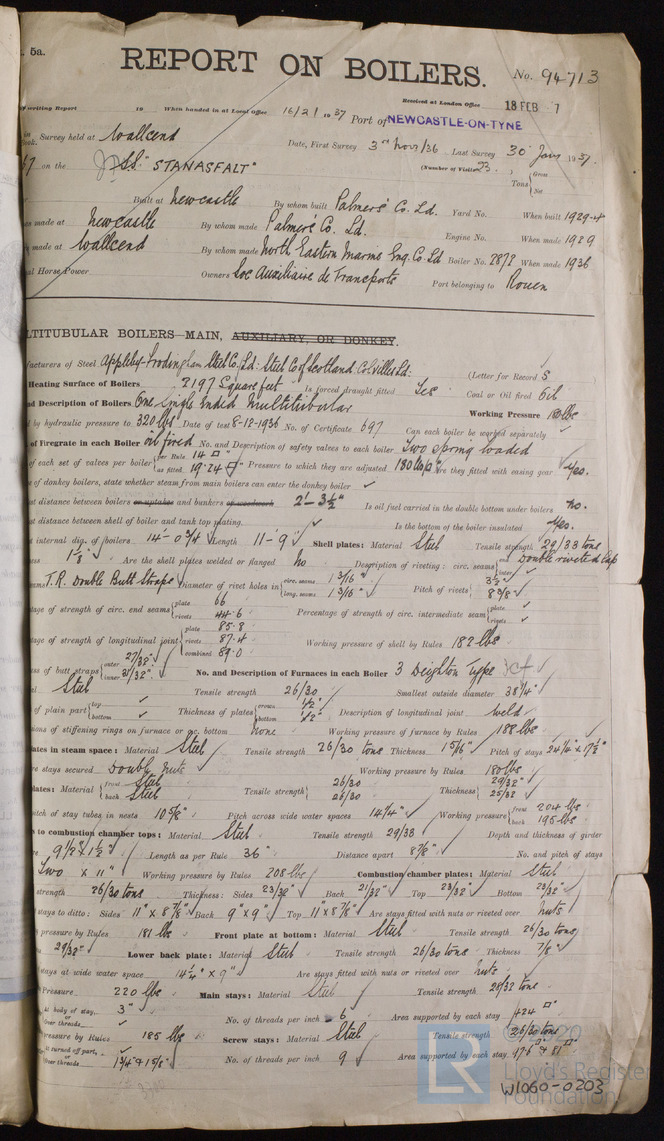 5a.
REPORT ON BOILERS.
No. 94713
writing Report 19 When handed in at Local Office 16/2/1937 Received at London Office 18 FEB 7
Port of NEWCASTLE-ON-TYNE
Survey held at Wallsend Date, First Survey 3rd Nov/36 Last Survey 30 Jan 1937
on the "STANASFALT" (Number of Visits 93.) Tons {Gross Net
Built at Newcastle By whom built Palmers Co. Ld. Yard No. When built 1929-4
made at Newcastle By whom made Palmers Co. Ld. Engine No. When made 1929
made at Wallsend By whom made North Eastern Marine Eng. Co. Ld Boiler No. 2872 When made 1936
Horse Power Owners Soc Auxiliaire de Transports Port belonging to Rouen
LTITUBULAR BOILERS—MAIN, AUXILIARY, OR DONKEY.
facturers of Steel Appleby-Frodingham Steel Co. Ld: Steel Co of Scotland: Colvilles Ld: (Letter for Record S
Heating Surface of Boilers 2197 Square feet Is forced draught fitted Yes Coal or Oil fired Oil
d Description of Boilers One Single Ended Multitubular Working Pressure 180 lbs
by hydraulic pressure to 320 lbs Date of test 8-12-1936 No. of Certificate 697 Can each boiler be worked separately ✓
of Firegrate in each Boiler oil fired No. and Description of safety valves to each boiler Two Spring loaded
of each set of valves per boiler {per Rule 14 □" as fitted 19.24 □" Pressure to which they are adjusted 180 lbs □" Are they fitted with easing gear Yes.
of donkey boilers, state whether steam from main boilers can enter the donkey boiler ✓
st distance between boilers or uptakes and bunkers or woodwork 2'-3½" Is oil fuel carried in the double bottom under boilers no.
st distance between shell of boiler and tank top plating. Is the bottom of the boiler insulated Yes.
internal dia. of boilers 14'-0¾" Length 11'-9" Shell plates: Material Steel Tensile strength 29/33 tons
1⅛" Are the shell plates welded or flanged no Description of riveting: circ. seams {end Double riveted lap inter
T.R. Double Butt Straps Diameter of rivet holes in {circ. seams 1 3/16" long. seams 1 3/16" Pitch of rivets { 3½" 8⅜"
tage of strength of circ. end seams {plate 66 rivets 44.6 Percentage of strength of circ. intermediate seam {plate rivets
tage of strength of longitudinal joint {plate 85.8 rivets 87.4 combined 89.0 Working pressure of shell by Rules 182 lbs
ss of butt straps {outer 27/32" inner 31/32" No. and Description of Furnaces in each Boiler 3 Deighton Type
Steel Tensile strength 26/30 Smallest outside diameter 38¼"
of plain part {top bottom Thickness of plates {crown ½" bottom ½" Description of longitudinal joint weld
ions of stiffening rings on furnace or c.c. bottom none Working pressure of furnace by Rules 188 lbs
lates in steam space: Material Steel Tensile strength 26/30 tons Thickness 15/16" Pitch of stays 24¼" x 17½"
re stays secured Double Nuts Working pressure by Rules 180 lbs
lates: Material {front Steel back Steel Tensile strength {26/30 26/30 Thickness {29/32" 25/32"
itch of stay tubes in nests 10⅝" Pitch across wide water spaces 14¼" Working pressure {front 204 lbs back 195 lbs
s to combustion chamber tops: Material Steel Tensile strength 29/33 Depth and thickness of girder
9½" x 1½" Length as per Rule 36" Distance apart 8⅞" No. and pitch of stays
Two x 11" Working pressure by Rules 208 lbs Combustion chamber plates: Material Steel
strength 26/30 tons Thickness: Sides 23/32" Back 21/32" Top 23/32" Bottom 23/32"
stays to ditto: Sides 11" x 8⅞" Back 9" x 9" Top 11" x 8⅞" Are stays fitted with nuts or riveted over Nuts
pressure by Rules 181 lbs Front plate at bottom: Material Steel Tensile strength 26/30 tons
29/32" Lower back plate: Material Steel Tensile strength 26/30 tons Thickness 7/8"
stays at wide water space 14¼" x 9" Are stays fitted with nuts or riveted over Nuts
Pressure 220 lbs Main stays: Material Steel Tensile strength 28/32 tons
At body of stay, 3" Over threads. No. of threads per inch 6 Area supported by each stay 424 □"
pressure by Rules 185 lbs Screw stays: Material Steel Tensile strength 26/30 tons
At turned off part, Over threads 1¾" & 1⅝" No. of threads per inch 9 Area supported by each stay 97.6 & 81 □"
LR © 2020
Lloyd's Register
Foundation
W1060-0203